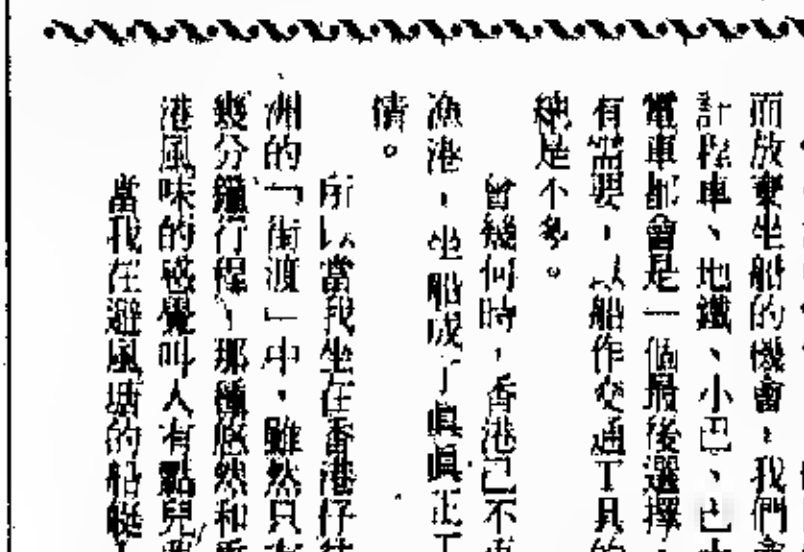 而放棄坐船的機會，我們
計程車、地鐵、小巴、巴士
電車都會是一個最後選擇，
有需要，以船作交通工具的
總是不多。
曾幾何時，香港已不再
漁港，坐船成了真真正正
情。
所以當我坐在香港仔往
洲的「街渡」中，雖然只有
幾分鐘行程，那種悠然和
港風味的感覺叫人有點兒
當我在避風塘的船艇